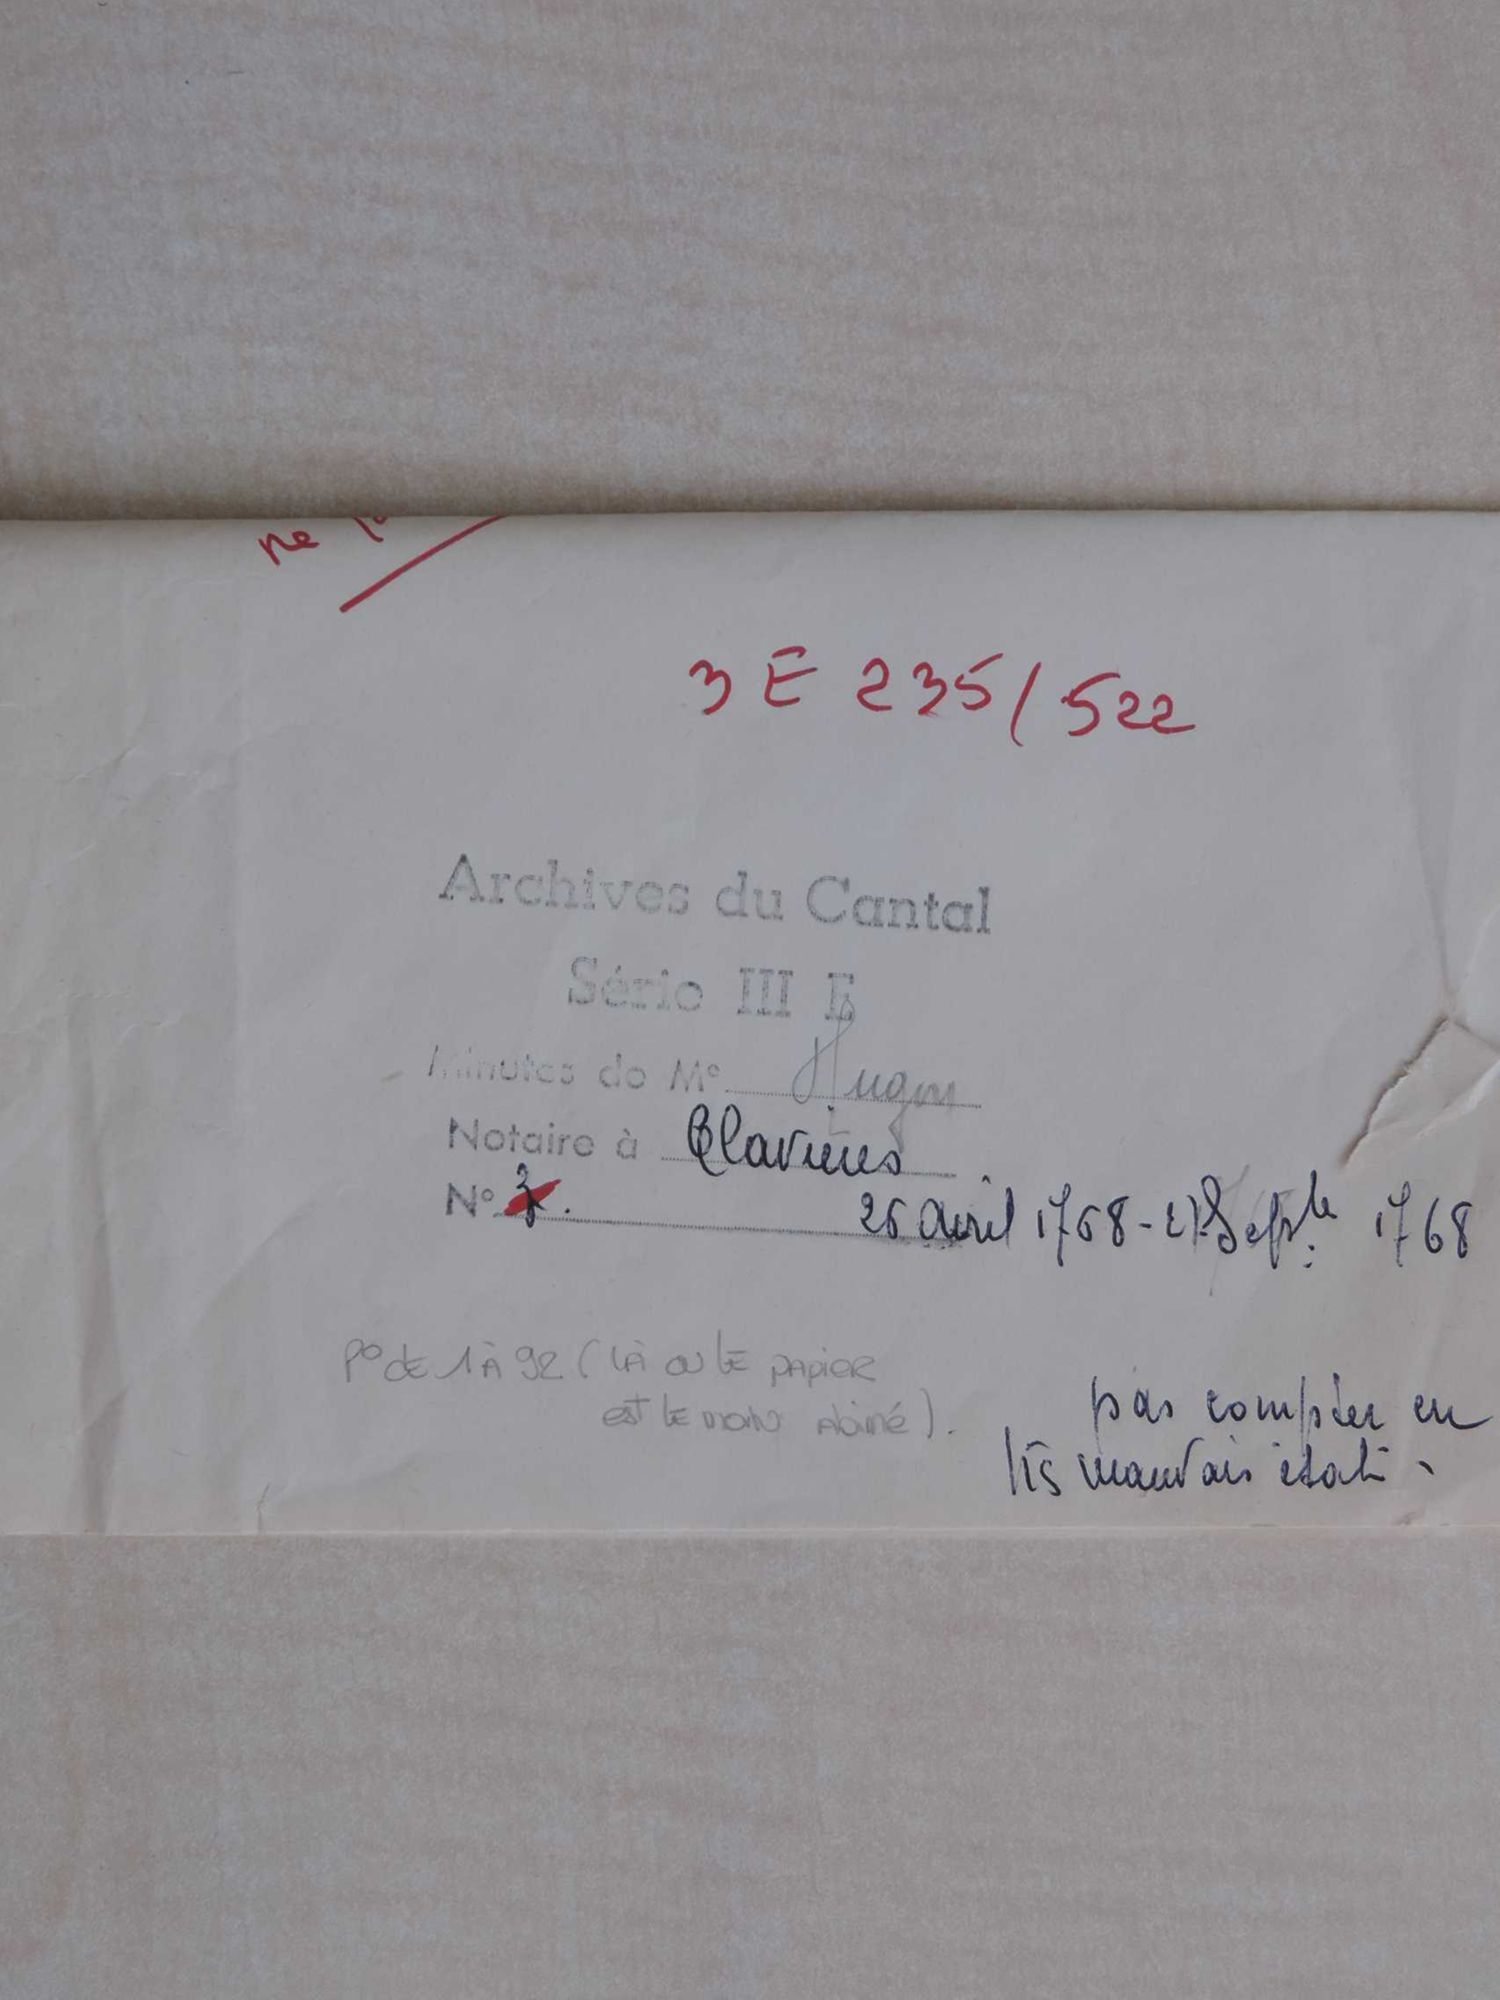 ne
3 E 235/522
Archives du Cantal
Série III E
Minutes de Me Hugon
Notaire à Clavières
No 3.
26 avril 1768 - Septbre 1768
Po de 1 à 92 (Là ou le papier
est le moins abimé).
pas compter en
trs mauvais état.